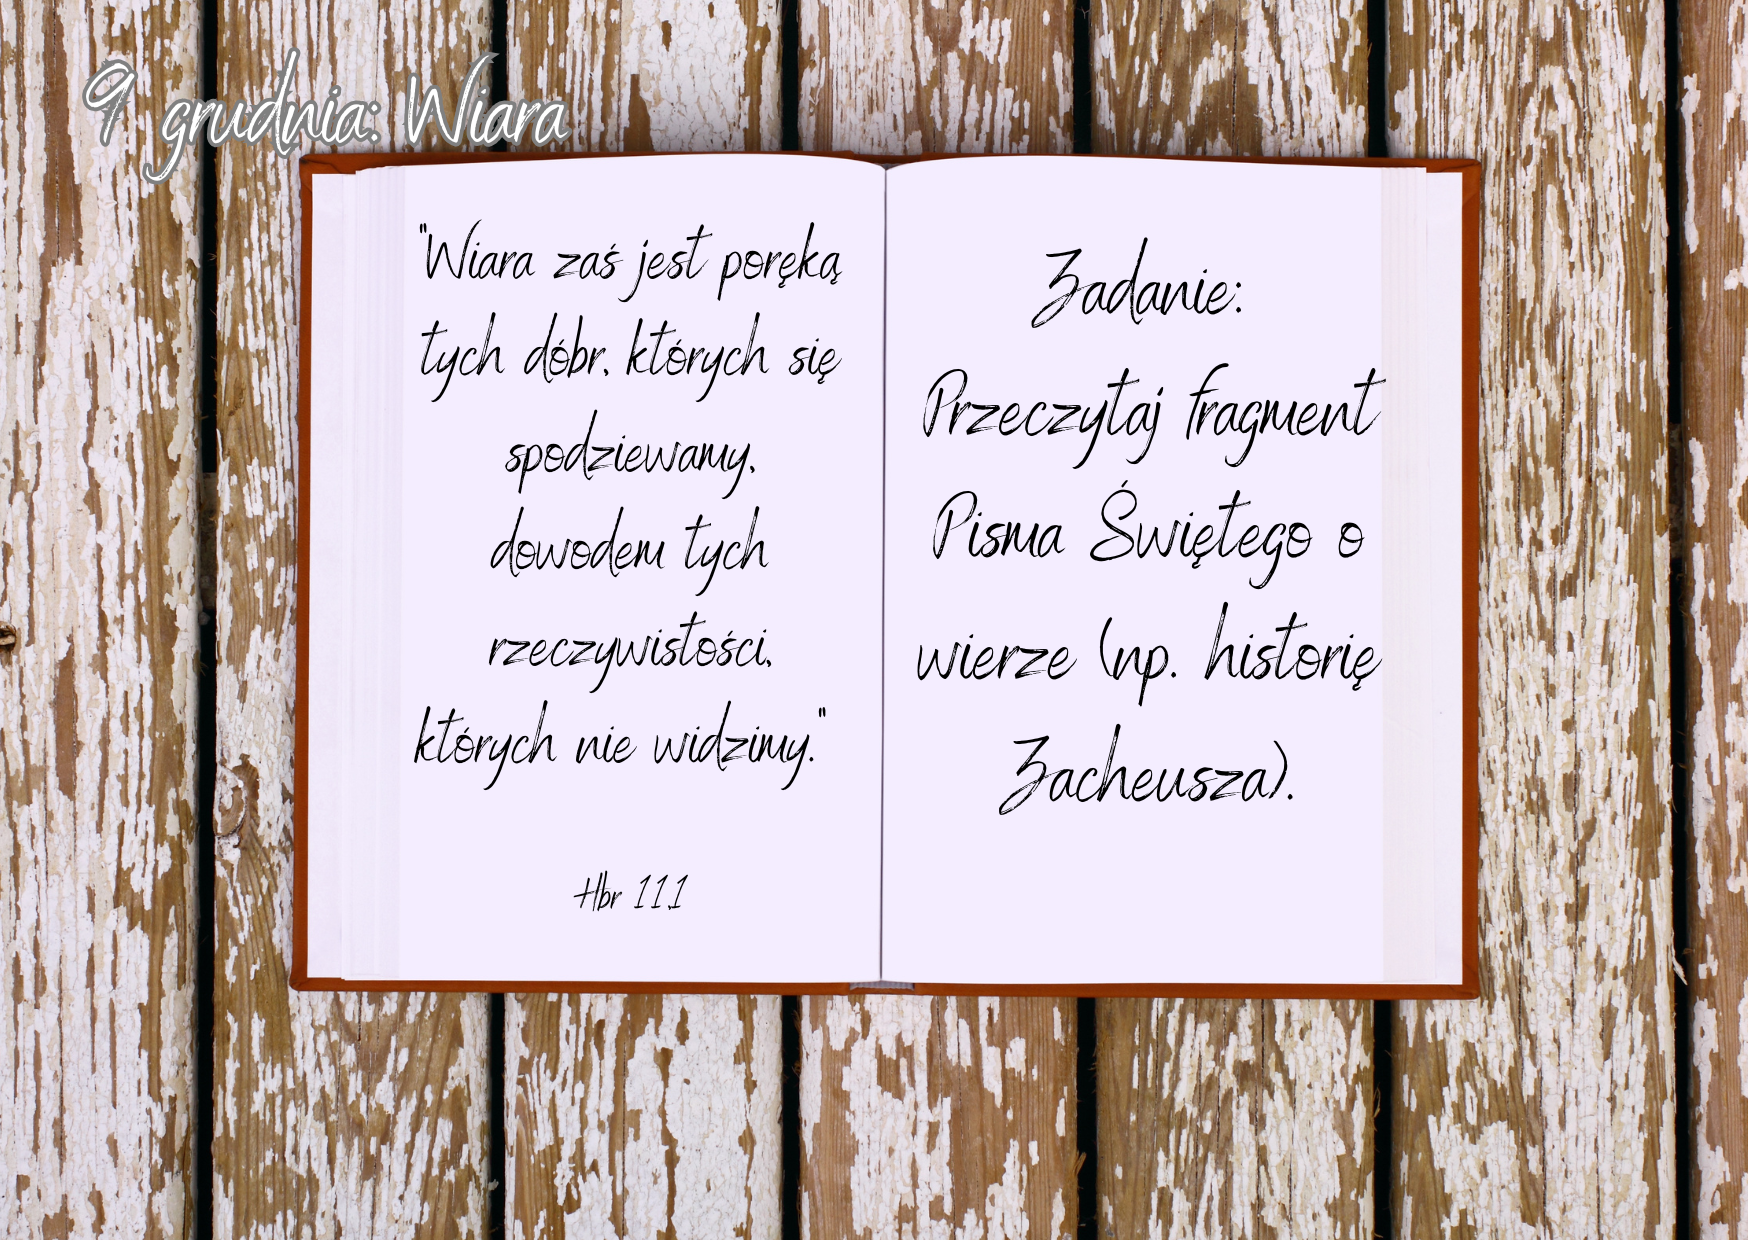 9 grudnia: Wiara
"Wiara zaś jest poręką
tych dóbr, których się
spodziewamy,
dowodem tych
rzeczywistości,
których nie widzimy."
Hbr 11,1
Zadanie:
Przeczytaj fragment
Pisma Świętego o
wierze (np. historię
Zacheusza).